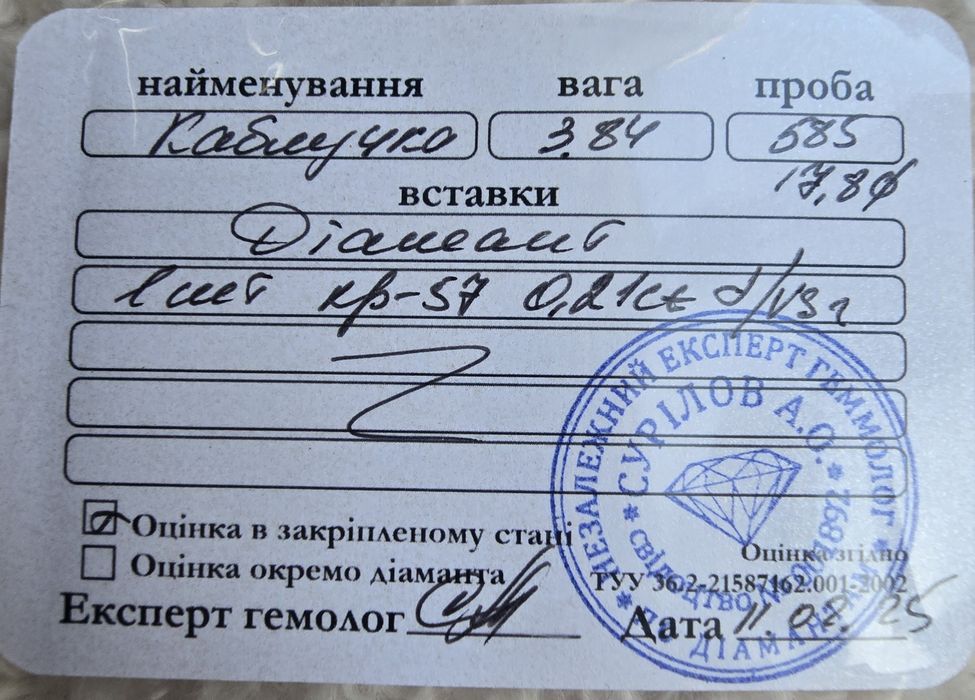 найменування вага проба
Каблучка 3.84 585
17,8ф
вставки
Діамант
1 шт кр-57 0,21ct
Оцінка в закріпленому стані
Оцінка окремо діаманта
Оцінка згідно
ТУУ 36.2-21587162.001-2002
Експерт гемолог Дата 11.02.25
НЕЗАЛЕЖНИЙ ЕКСПЕРТ ГЕММОЛОГ
ПО ДІАМАНТАМ
СУРІЛОВ А.О.